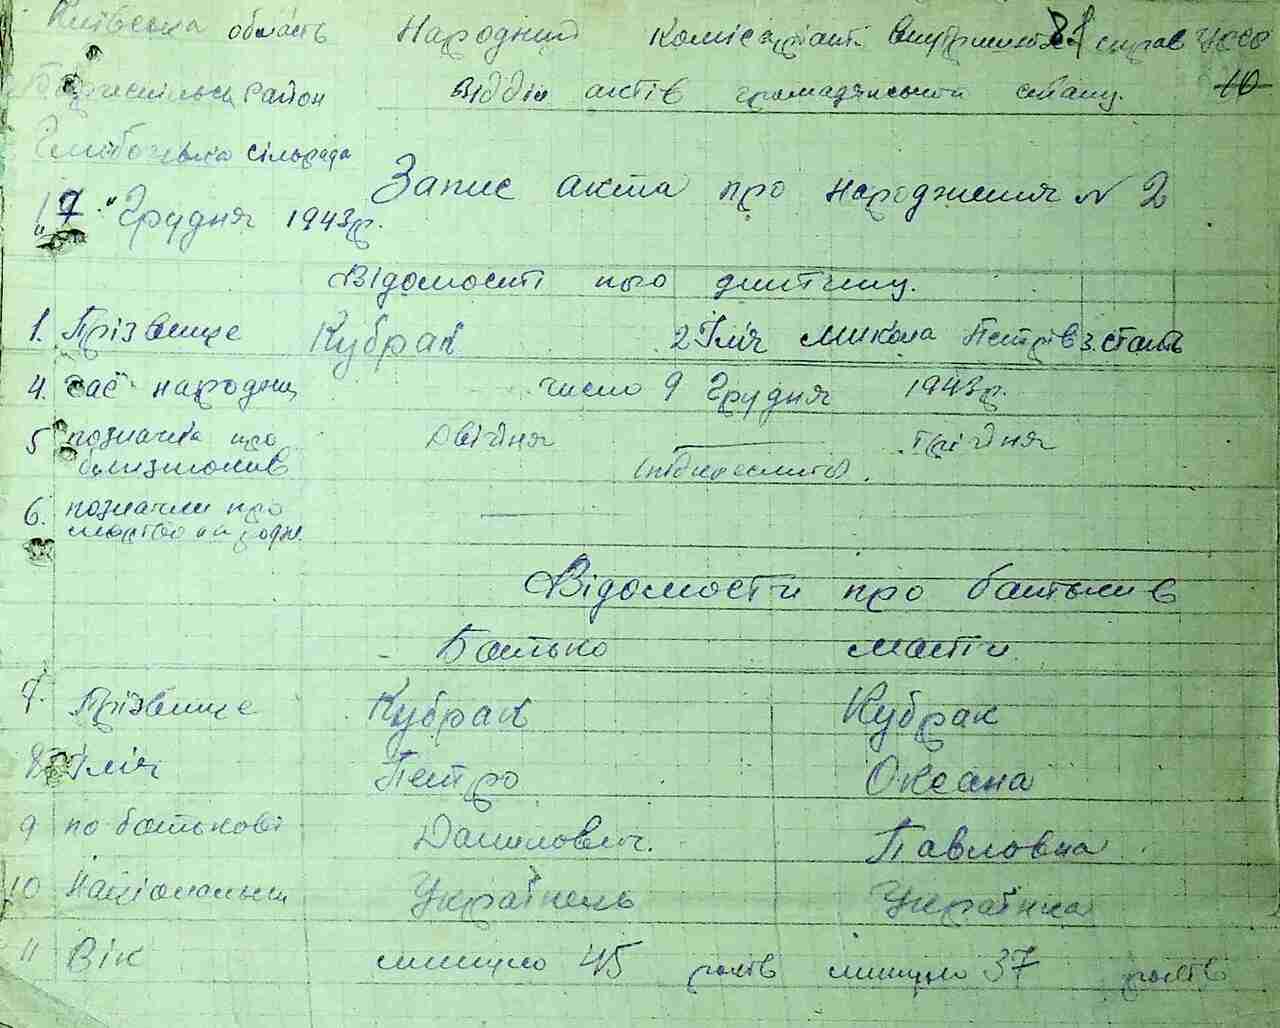 Київська область Народний Комісаріат внутрішніх справ УРСР
район відділ актів громадянськой стану. 10
сільрада
Запис акта про народження N 2
"17" Грудня 1943р.
Відомості про дитину.
1. Прізвище Кубрак 2 Імя Микола Петрів 3. стать
4. час народж число 9 Грудня 1943р.
5 позначка про Двійня — Трійня
близнюків (підкреслити).
6. позначки про —
мертво народж.
Відомости про батьків
Батько мати
7. Прізвище Кубрак Кубрак
8. Імя Петро Оксана
9 по батькові Данилович. Павловна
10 Національни Українець Українка
11 Вік минуло 45 років минуло 37 років